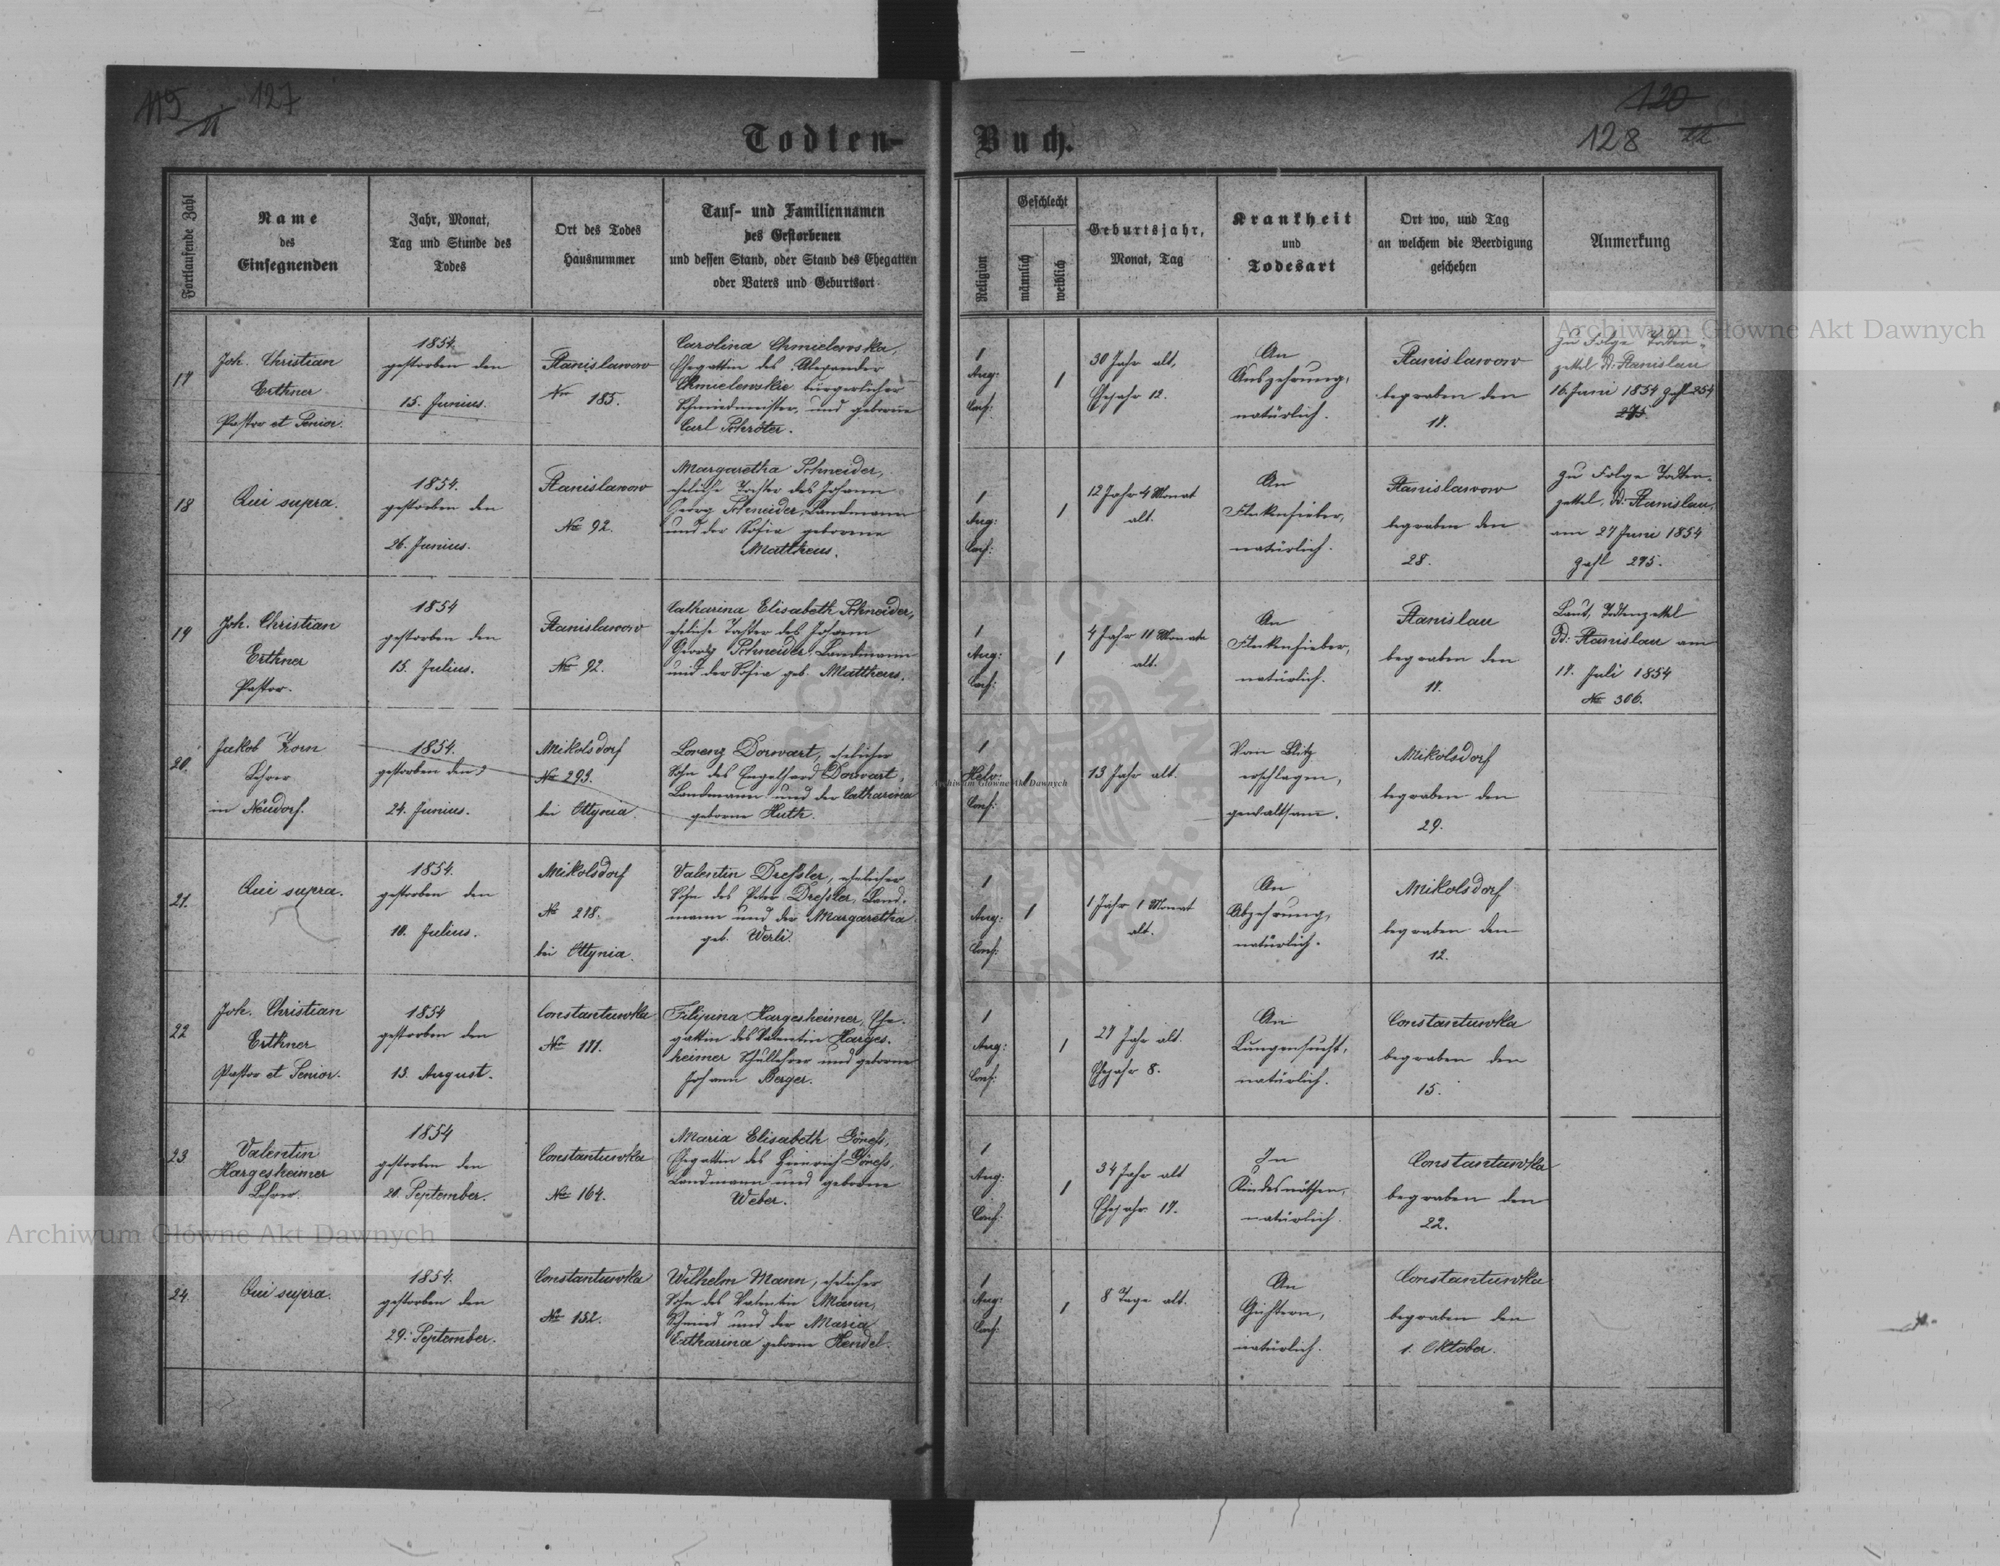 115
11
127
120
12
128
Todten-Buch.
Fortlaufende Zahl
Name
des
Einsegnenden
Jahr, Monat,
Tag und Stunde des
Todes
Ort des Todes
Hausnummer
Tauf- und Familiennamen
des Gestorbenen
und dessen Stand, oder Stand des Ehegatten
oder Vaters und Geburtsort
Religion
Geschlecht
männlich
weiblich
Geburtsjahr,
Monat, Tag
Krankheit
und
Todesart
Ort wo, und Tag
an welchem die Beerdigung
geschehen
Anmerkung
17
Joh. Christian
Erthner
Pastor et Senior.
1854.
gestorben den
15. Junius.
Stanislawow
Nro 185.
Carolina Chmielewska,
Ehegattin des Alexander
Chmielewskie bürgerlicher
Schmiedmeister, und geborne
Carl Schröter.
1
Aug:
Conf:
1
30 Jahr alt,
Ehejahr 12.
An
Auszehrung,
natürlich.
Stanislawow
begraben den
17.
Zu Folge Todten-
zettel D: Stanislau
16. Juni 1854 Zahl 254
275.
18
Qui supra.
1854.
gestorben den
26. Junius.
Stanislawow
Nro 92.
Margaretha Schneider,
eheliche Tochter des Johann
Georg Schneider, Landmann
und der Sofia geborene
Mattheus.
1
Aug:
Conf:
1
12 Jahr 4 Monat
alt.
An
Fleckenfieber,
natürlich.
Stanislawow
begraben den
28.
Zu Folge Todten-
zettel, D: Stanislau,
am 27 Juni 1854
Zahl 275.
19
Joh. Christian
Erthner
Pastor.
1854
gestorben den
15. Julius.
Stanislawow
Nro 92.
Catharina Elisabeth Schneider,
eheliche Tochter des Johann
Georg Schneider Landmann
und der Sofia geb. Mattheus.
1
Aug:
Conf:
1
4 Jahr 11 Monate
alt.
An
Fleckenfieber,
natürlich.
Stanislau
begraben den
17.
Laut, Todtenzettel
D: Stanislau am
17. Juli 1854
Nro 306.
20.
Jakob Zorn
Lehrer
in Neudorf.
1854.
gestorben den
24. Junius.
Mikolsdorf
Nro 293.
bei Ottynia.
Lorenz Dorwart, ehelicher
Sohn des Engelhard Dorwart,
Landmann und der Catharina
geborne Huth.
1
Helv:
Conf:
1
13 Jahr alt.
Vom Blitz
erschlagen,
gewaltsam.
Mikolsdorf
begraben den
29.
21.
Qui supra.
1854.
gestorben den
10. Julius.
Mikolsdorf
No 218.
bei Ottynia.
Valentin Dreßler, ehelicher
Sohn des Peter Dreßler, Land-
mann und der Margaretha
geb. Werli.
1
Aug:
Conf:
1
1 Jahr 1 Monat
alt.
An
Abzehrung,
natürlich.
Mikolsdorf
begraben den
12.
22
Joh. Christian
Erthner
Pastor et Senior.
1854
gestorben den
13. August.
Constantuwka
Nro 171.
Filipina Hargesheimer, Ehe-
gattin des Valentin Harges-
heimer Schullehrer und geborne
Johann Berger.
1
Aug:
Conf:
1
27 Jahr alt.
Ehejahr 8.
An
Lungensucht,
natürlich.
Constantuwka
begraben den
15.
23
Valentin
Hargesheimer
Lehrer.
1854
gestorben den
20. September.
Constantuwka
Nro 164.
Maria Elisabeth
Ehegattin des Heinrich
Landmann und geborne
Weber.
1
Aug:
Conf:
1
34 Jahr alt
Ehejahr 17.
In
Kindesnöthen,
natürlich.
Constantuwka
begraben den
22.
24
Qui supra.
1854.
gestorben den
29. September.
Constantuwka
Nro 152.
Wilhelm Mann, ehelicher
Sohn des Valentin Mann,
Schmied und der Maria
Catharina geborne Hendel.
1
Aug:
Conf:
1
8 Tage alt.
An
Gichtern,
natürlich.
Constantuwka
begraben den
1. Oktober.
Archiwum Główne Akt Dawnych
Archiwum Główne Akt Dawnych
Archiwum Główne Akt Dawnych